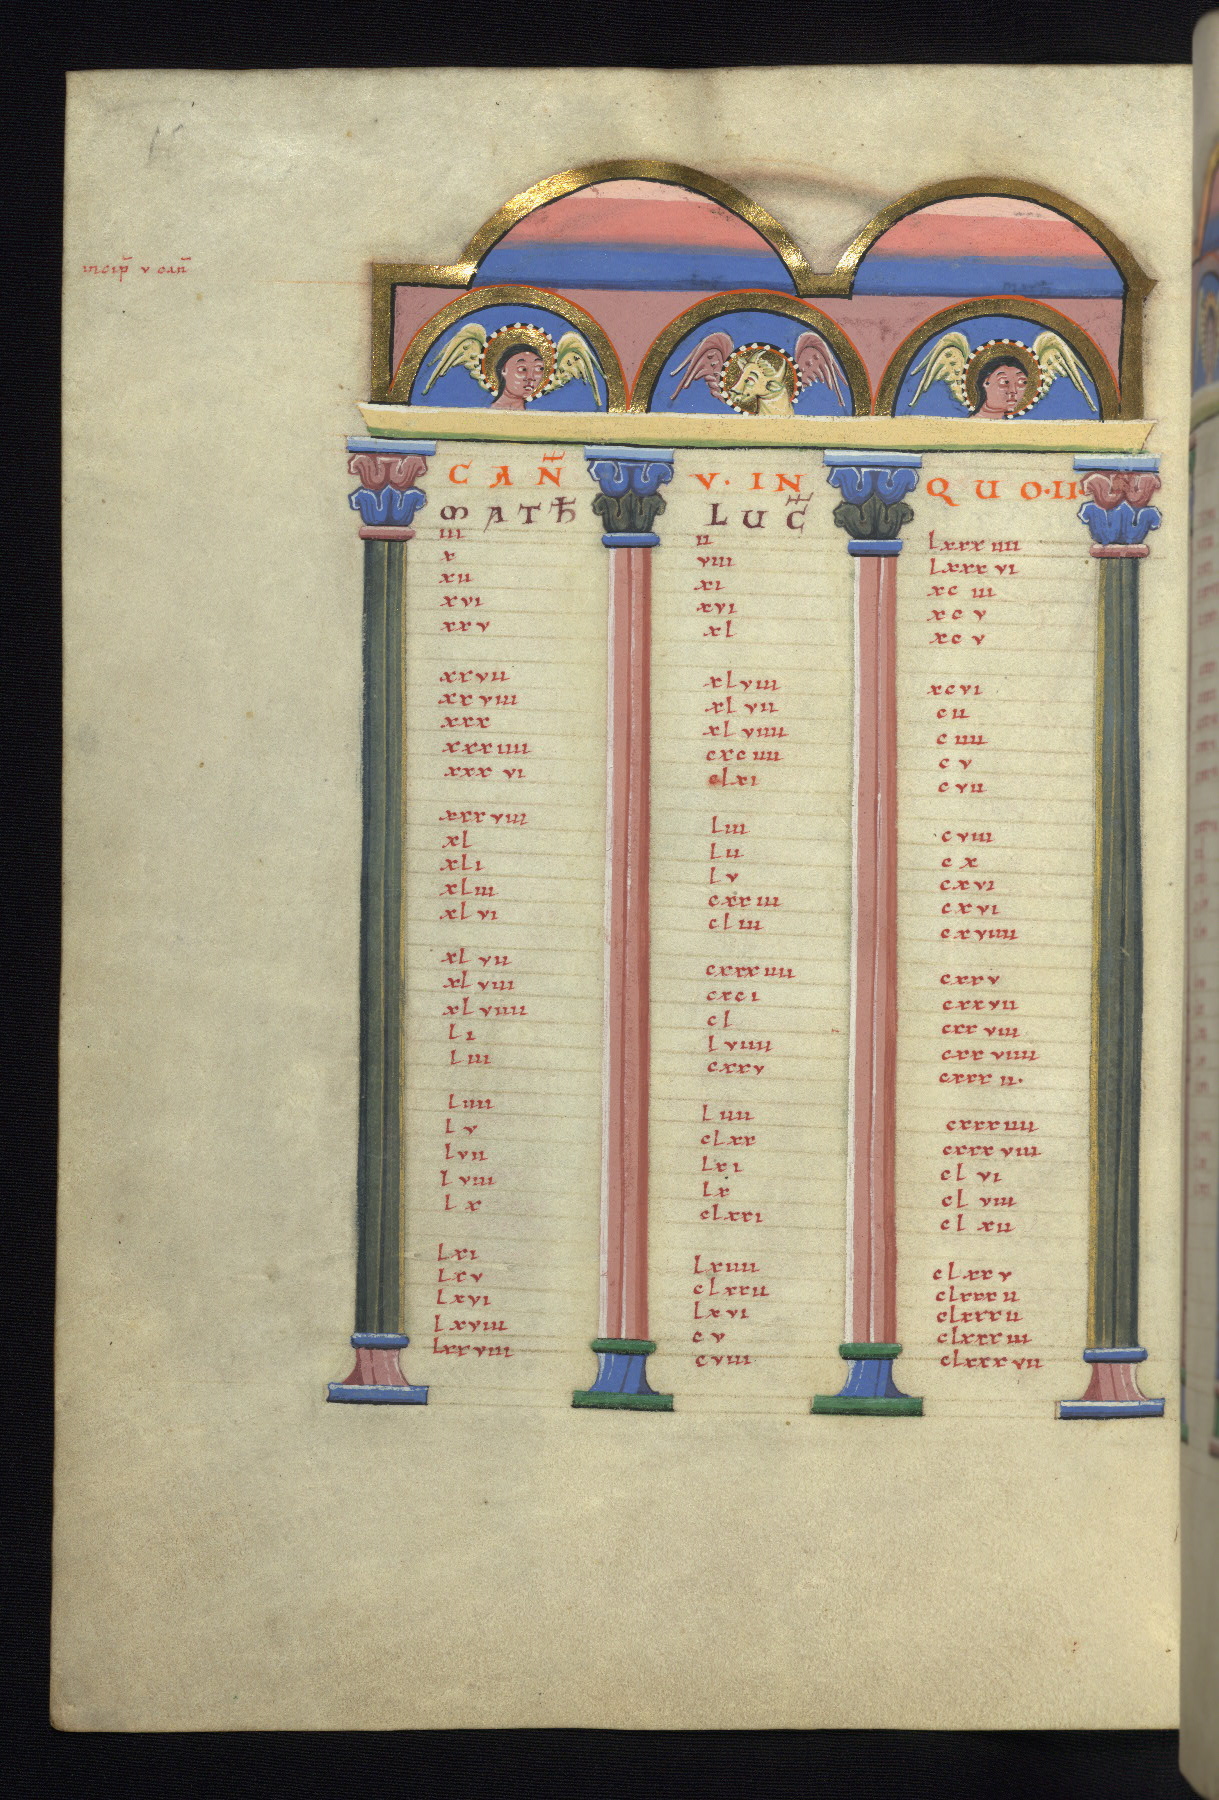 incip̄ v cañ
CAÑ V. IN QUO·II·
MATĦ LUC̄
iii ii lxxxiiii
x viii lxxxvi
xii xi xciii
xvi xvi xcv
xxv xl xcv
xxvii xlviii xcvi
xxviii xlvii cii
xxx xlviiii ciiii
xxxiiii cxciiii cv
xxxvi clxi cvii
xxxviii liii cviii
xl lii cx
xli lv cxvi
xliii cxxiii cxvi
xlvi cliii cxviiii
xlvii cxxxiiii cxxv
xlviii cxci cxxvii
xlviiii cl cxxviii
li lviiii cxxviiii
liii cxxv cxxxii·
liiii liiii cxxxiiii
lv clxx cxxxviii
lvii lxi clvi
lviii lx clviii
lx clxxi clxii
lxi lxiiii clxxv
lxv clxxii clxxxii
lxvi lxvi clxxxii
lxviii cv clxxxiii
lxxviii cviii clxxxvii